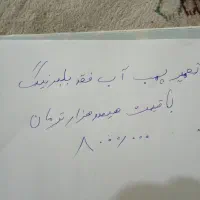 تعمیر پمپ آب فقد بلبرینگ
با قیمت هیصد هزار تومان
۸۰۰۰/۰۰۰